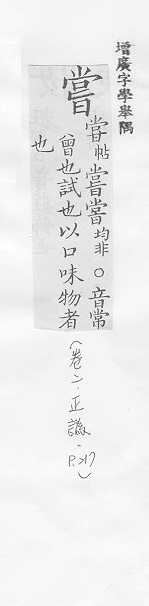 增廣字學舉隅
嘗
帖均非○音常
曾也試也以口味物者
也
(卷二.正譌.P.217)